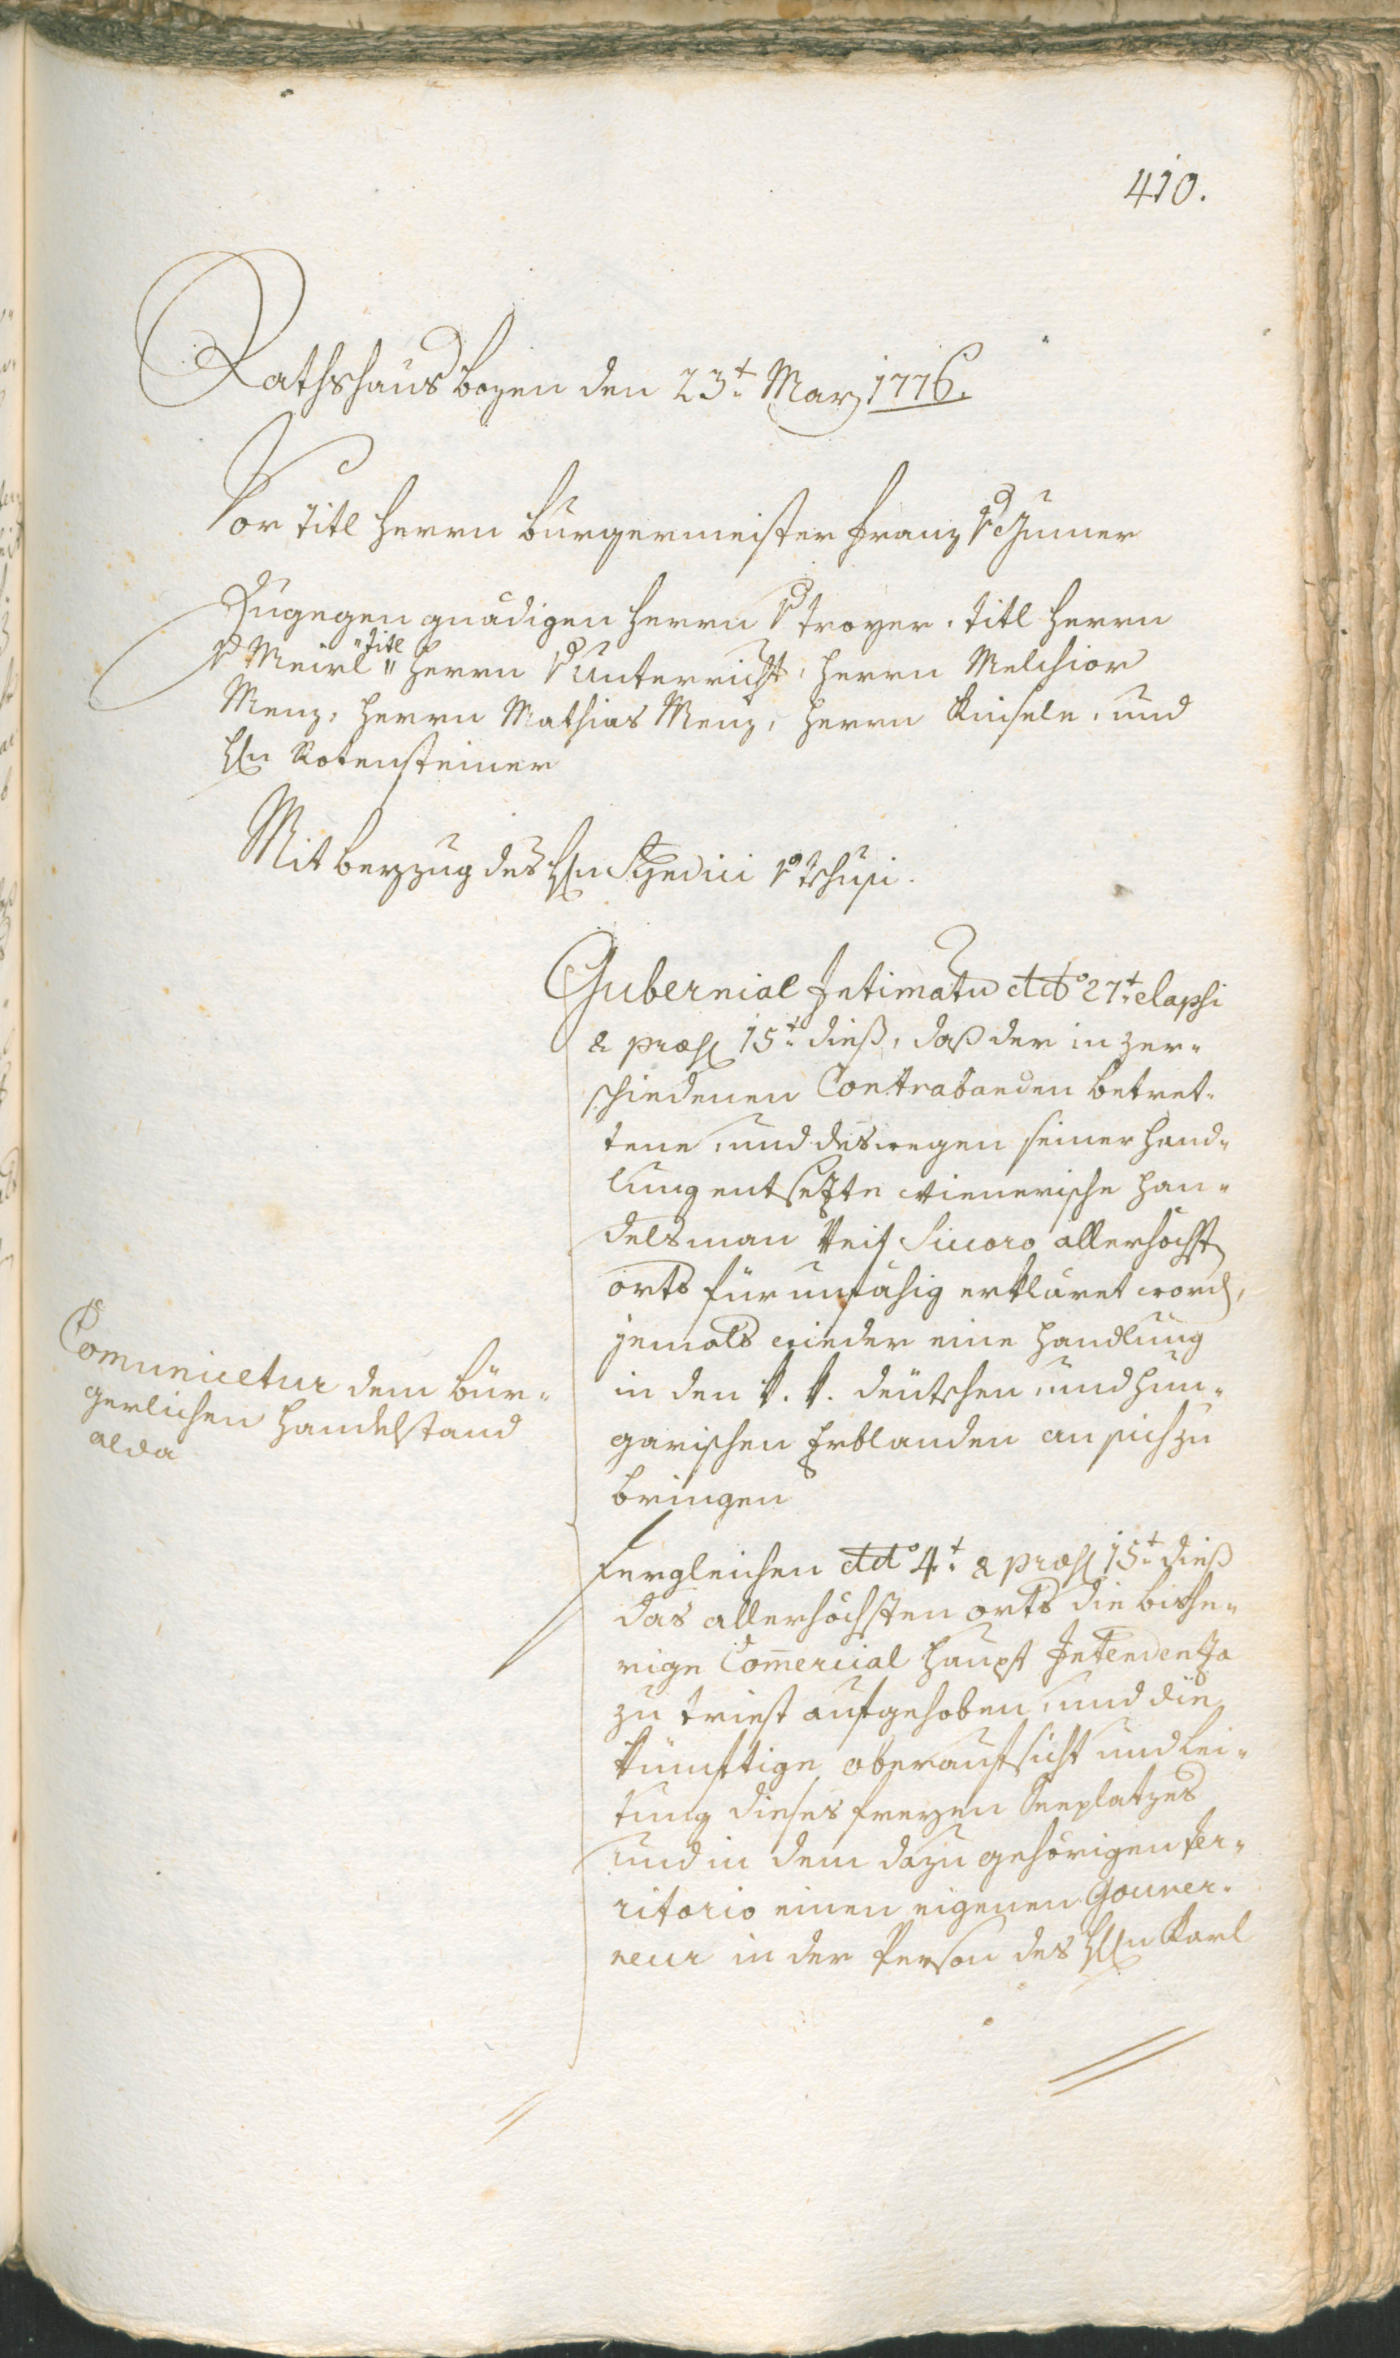 410.
Rathshaus bozen den 23t. Marz 1776.
Vor titl Herrn burgermeister Franz v Gumer
Zugegen gnädigen Herrn v troyer. titl Herrn
v Meirl "titl" Herrn v Unterricht, Herrn Melchior
Menz, Herrn Mathias Menz, Herrn Kinsele, und
Hn Rotensteiner
Mit beyzug des Hn Syndici v tschusi.
Gubernial Intimatū ddo 27t. elapsi
& præs 15t. dieß, daß der in zer-
schiedenen Contrabanden betret-
tene, und deswegen seiner Hand-
lung entsezte wienerische Han-
delsman Veit Succoro allerhöchst
orts für unfähig erkläret word,
jemals wieder eine Handlung
in den k. k. deütschen, und hun-
garischen Erblanden an sich zu
bringen
Comunicetur dem bür-
gerlichen Handelstand
alda
Dergleichen ddo 4t. & præs 15t. dieß
das allerhöchsten orts die bishe-
rige Com̄ercial Haupt Intendenza
zu triest aufgehoben, und die
künftige oberaufsicht und Lei-
tung dieses freyen Seeplatzes
und in dem dazu gehörigen ter-
ritorio einen eigenen Gouver-
neur in der Person des Hn Karl